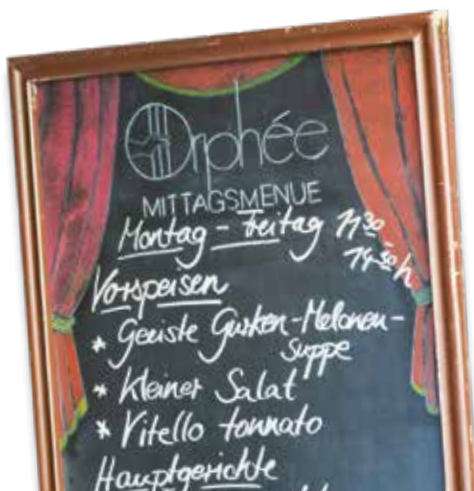 Orphée
MITTAGSMENUE
Montag - Freitag 11³⁰
- 14³⁰ h
Vorspeisen
* Geeiste Gurken-Melonen-
Suppe
* Kleiner Salat
* Vitello tonnato
Hauptgerichte